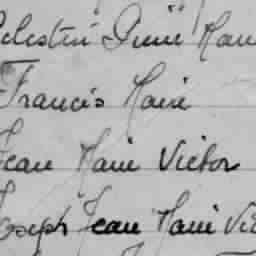 Celestin Désiré Marie
Francis Marie
Jean Marie Victor
Joseph Jean Marie Vic